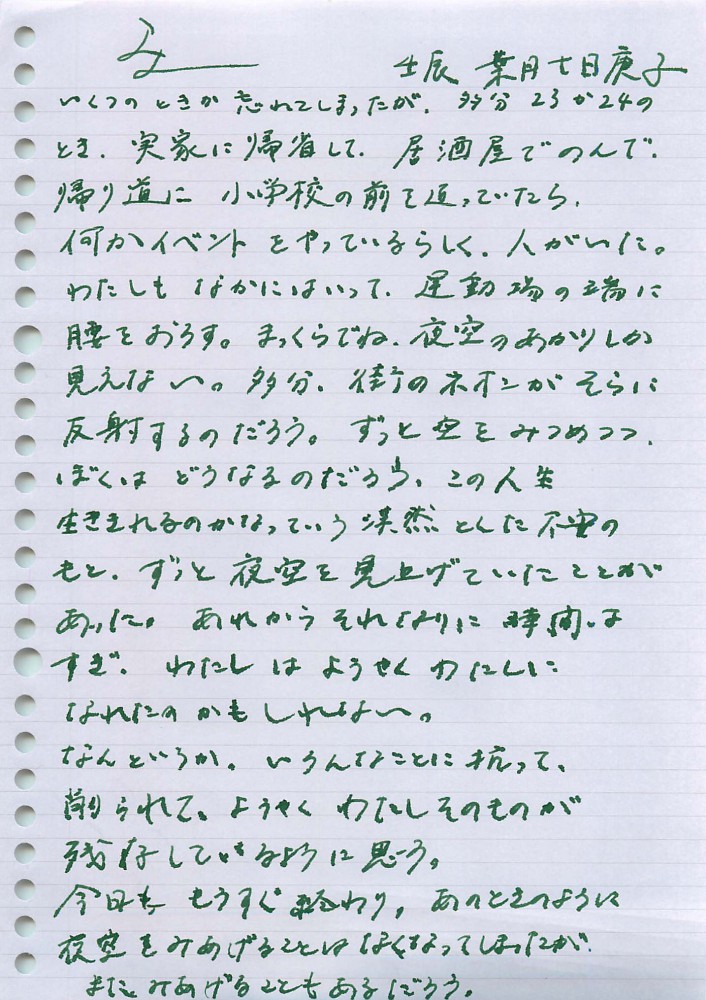 壬辰 葉月七日庚子
いくつのときか忘れてしまったが、多分23か24の
とき、実家に帰省して、居酒屋でのんで、
帰り道に 小学校の前を辿っていたら、
何かイベントをやっているらしく、人がいた。
わたしも なかにはいって、運動場の端に
腰をおろす。まっくらでね、夜空のあかりしか
見えない。多分、街のネオンがそらに
反射するのだろう。ずっと空をみつめつつ、
ぼくは どうなるのだろう、この人生
生ききれるのかなっていう漠然とした不安の
もと、ずっと夜空を見上げていたことが
あった。あれからそれなりに時間は
すぎ、わたしはようやくわたしに
なれたのかもしれない。
なんというか、いろんなことに抗って、
削られて、ようやくわたしそのものが
残存しているように思う。
今日も もうすぐ終わり、あのときのように
夜空をみあげることはなくなってしまったが、
またみあげることもあるだろう。